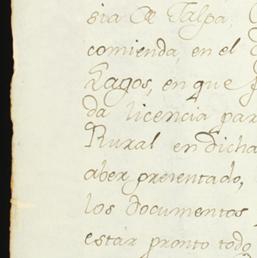 sia de Talpa,
comienda, en el
Lagos, en que
da licencia par
Rural en dicha
aber presentado,
los Documentos
estar pronto todo